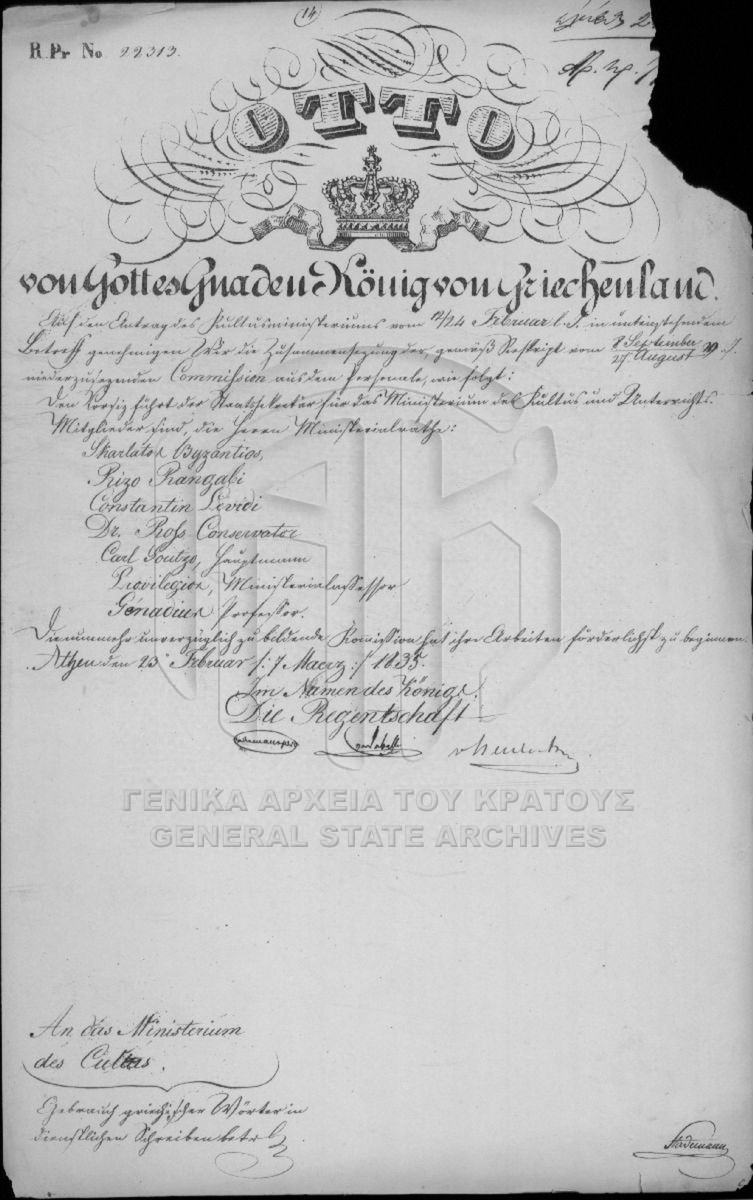 (14)
R.Pr No 22313.
OTTO
von Gottes Gnaden König von Griechenland.
Auf den Antrag des Kultusministeriums vom 12/24 Februar l. J. in untenstehendem
Betreff genehmigen Wir die Zusammensezung der, gemäß Reskript vom 8 September / 27 August v. J.
niederzusezenden Commission aus dem Personale, wie folgt:
Den Vorsiz führt der Staatssekretär für das Ministerium des Kultus und Unterrichts.
Mitglieder sind, die Herrn Ministerialräthe:
Skarlatos Byzantios,
Rizo Rangabi
Constantin Levidi
Dr. Ross Conservator
Carl Soutzo, Hauptmann
Provilegios, Ministerialassessor
Génadius Professor.
Die nunmehr unverzüglich zu bildende Komission hat ihre Arbeiten förderlichst zu beginnen.
Athen den 23 Februar /: 7 Maerz :/ 1835.
Im Namen des Königs.
Die Regentschaft
ΓΕΝΙΚΑ ΑΡΧΕΙΑ ΤΟΥ ΚΡΑΤΟΥΣ
GENERAL STATE ARCHIVES
An das Ministerium
des Cultus.
Gebrauch griechischer Wörter in
dienstlichen Schreiben betr.
Stademann